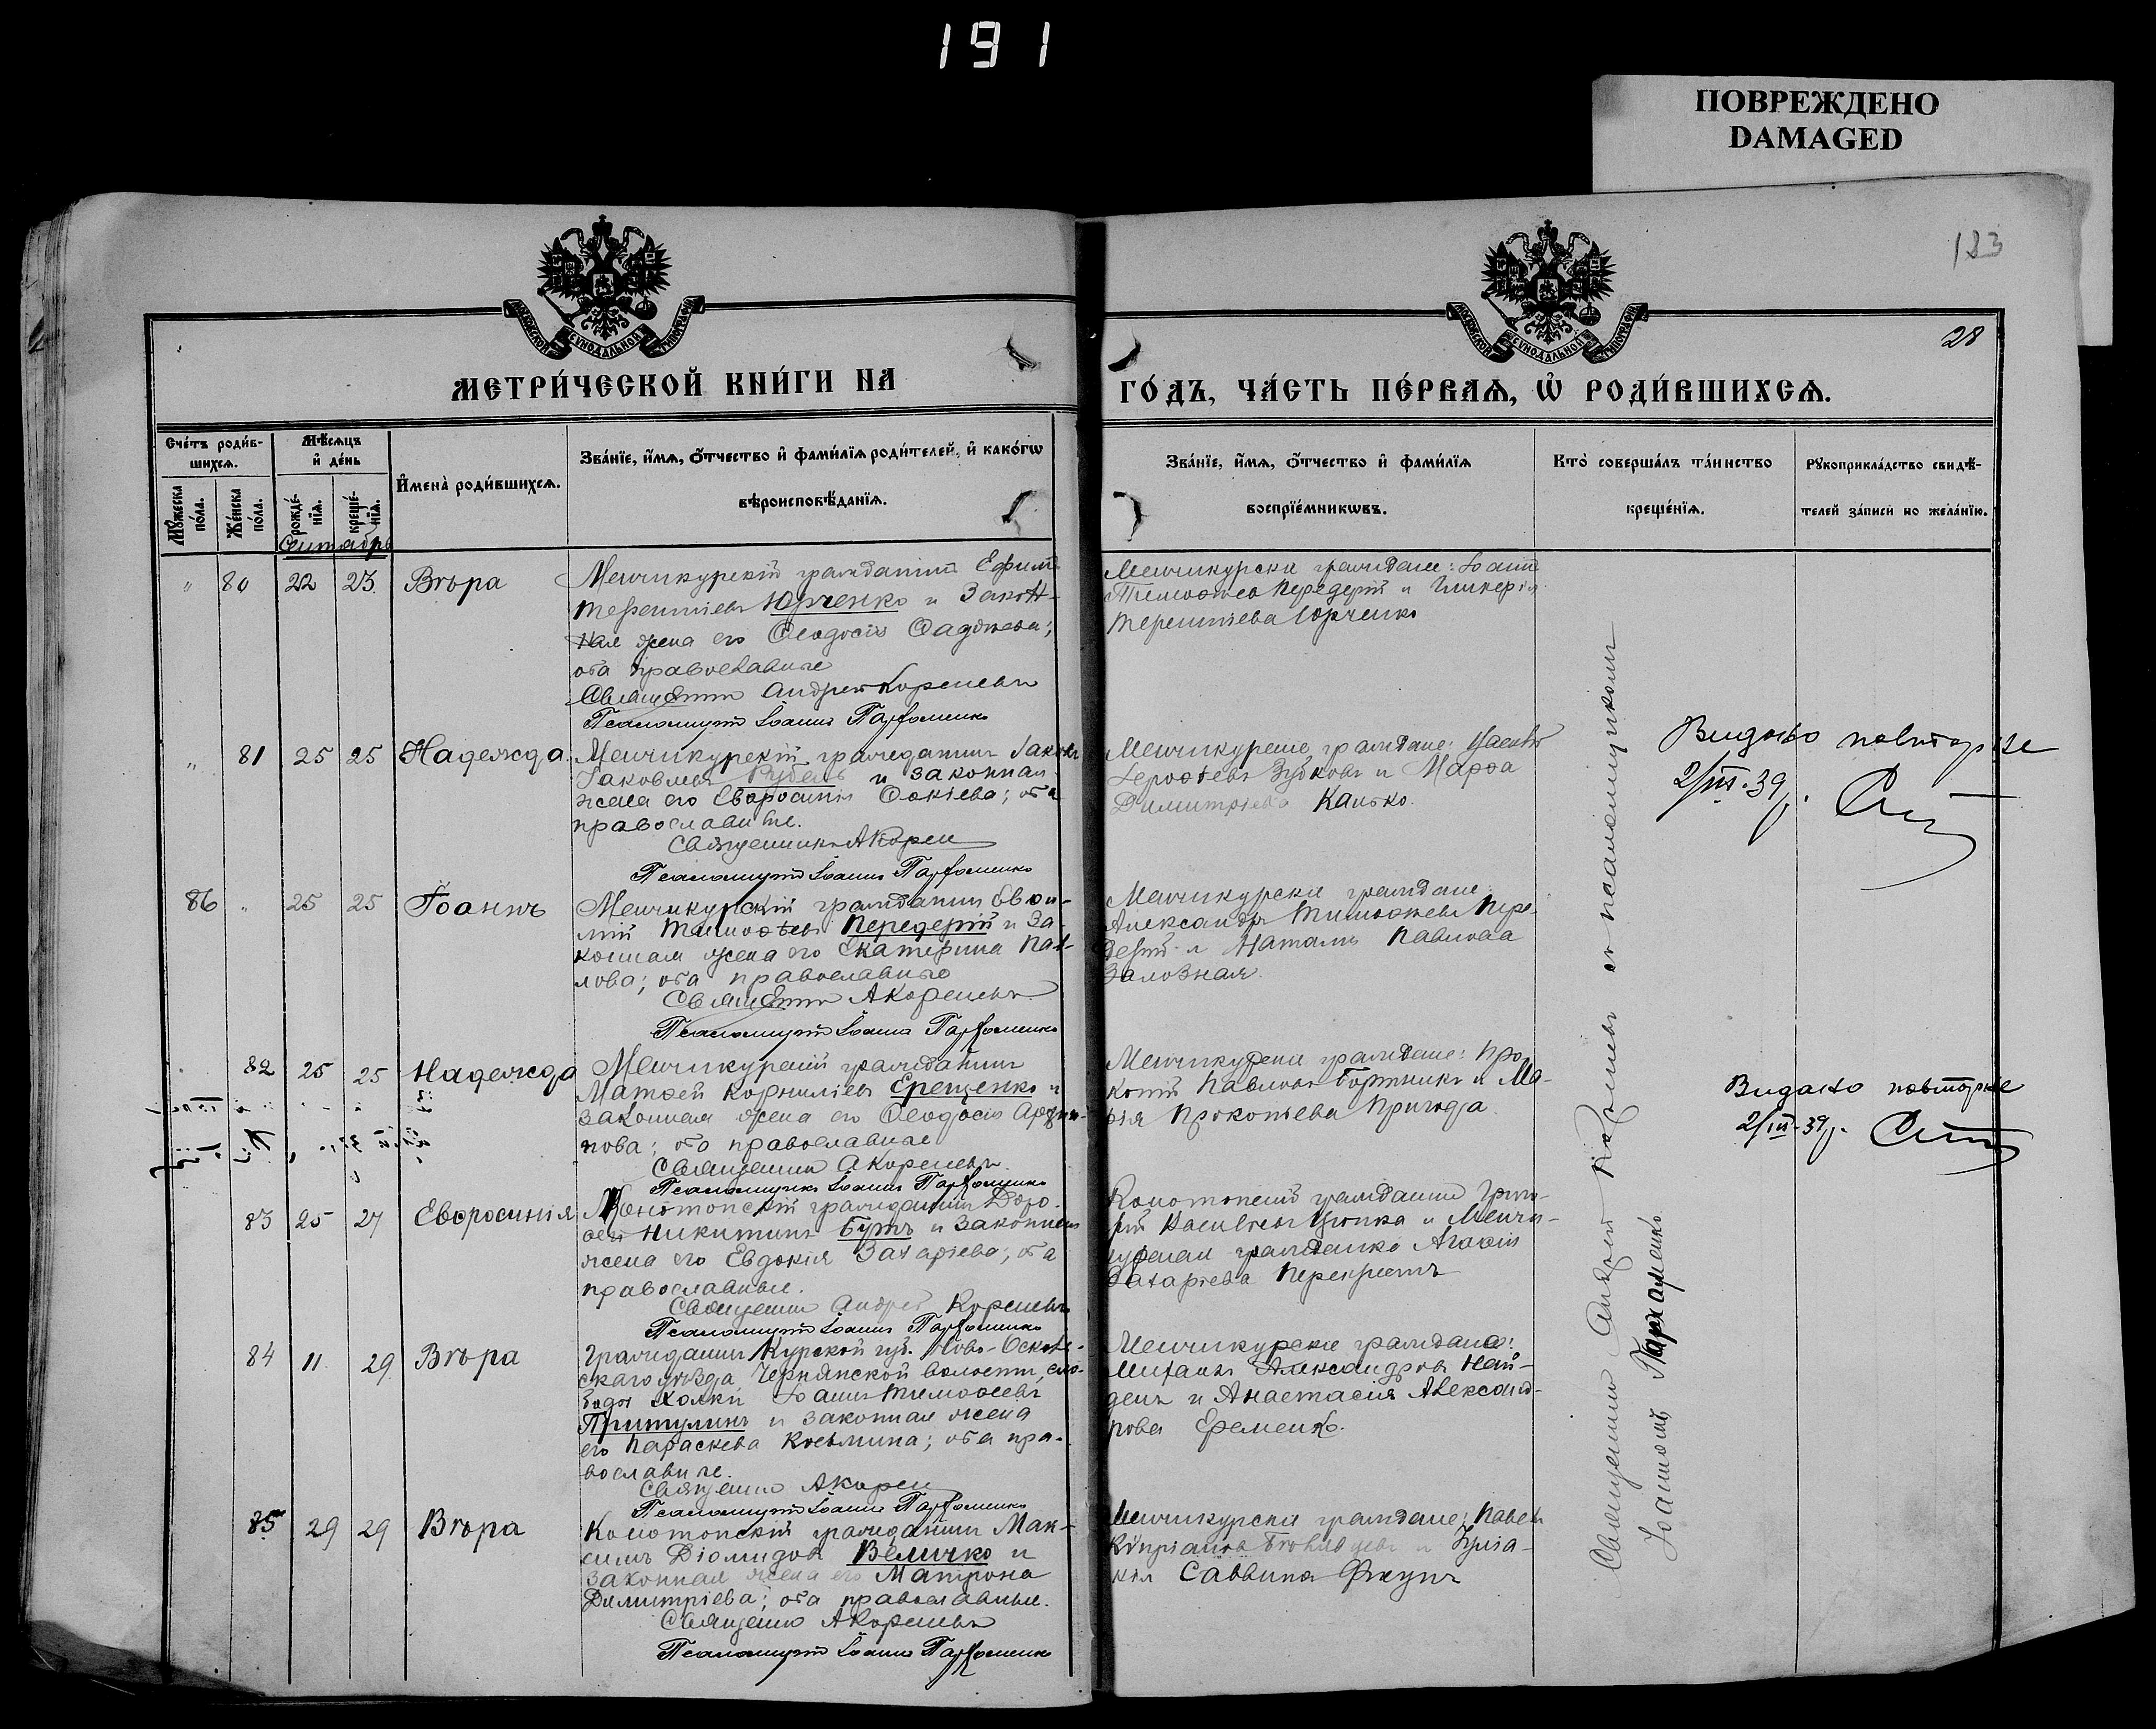 191
ПОВРЕЖДЕНО
DAMAGED
123
28
МОСКОВСКОЙ СѴНОДАЛЬНОЙ ТИПОГРАФІИ
МОСКОВСКОЙ СѴНОДАЛЬНОЙ ТИПОГРАФІИ
МЕТРИ́ЧЕСКОЙ КНИ́ГИ НА
ГО́ДЪ, ЧА́СТЬ ПЕ́РВАѦ, Ѡ҆ РОДИ́ВШИХСѦ.
Сче́тъ роди́в-
шихсѧ.
Мѣ́сѧцъ
и҆ де́нь
Мꙋ́жеска
по́ла.
Же́нска
по́ла.
рожде́-
нїѧ.
креще́-
нїѧ.
И҆мена̀ роди́вшихсѧ.
Зва́нїе, и҆́мѧ, ѻ҆́тчество и҆ фами́лїѧ роди́телей, и҆ како́гѡ
вѣроисповѣ́данїѧ.
Зва́нїе, и҆́мѧ, ѻ҆́тчество и҆ фами́лїѧ
воспрїе́мникѡвъ.
Кто̀ соверша́лъ та́инство
креще́нїѧ.
Рꙋкоприкла́дство свидѣ́-
телей за́писи по жела́нїю.
Сентябрь
" 80 22 23. Вѣра
Менчикурскій гражданинъ Ефимъ
Терентіевъ Юрченко и закон-
ная жена его Ѳеодосія Ѳаддеева;
оба православные
Священникъ Андрей Кореневъ
Псаломщикъ Іоаннъ Парфоменко
Менчикурскіе граждане: Іоаннъ
Тимоѳеевъ Передерій и Гликерія
Терентіева Юрченко
" 81 25 25 Надежда.
Менчикурскій гражданинъ Іаковъ
Іаковлевъ Рубель и законная
жена его Евфросинія Ѳокіева; оба
православные.
Священникъ А Корен
Псаломщикъ Іоаннъ Парфоменко
Менчикурскіе граждане:
Зубковъ и Марѳа
Димитріева
Видано повторне
2/III.39 р.
86 " 25 25 Іоаннъ
Менчикурскій гражданинъ Евѳи-
мій Тимоѳеевъ Передерій и за-
конная жена его Екатерина Пав-
лова; оба православные
Священникъ А Кореневъ
Псаломщикъ Іоаннъ Парфоменко
Менчикурскіе граждане:
Александръ Тимоѳеевъ Пере-
дерій и Наталія Павлова
Заловная.
82 25 25 Надежда
Менчикурскій гражданинъ
Матѳей Корниліевъ Ерещенко и
законная жена его Ѳеодосія
пова; оба православные
Священникъ А Кореневъ
Псаломщикъ Іоаннъ Парфоменко
Менчикурскіе граждане: Про-
копій Павловъ Бортникъ и Ма-
рія Прокопіева Пригода.
Видано повторне
2/III-39 р.
83 25 27 Евфросинія
Конотопскій гражданинъ Доро-
ѳей Никитинъ Бутъ и законная
жена его Евдокія Захаріева; оба
православные.
Священникъ Андрей Кореневъ
Псаломщикъ Іоаннъ Парфоменко
Конотопскій гражданинъ Григо-
рій Васильевъ и Менчи-
курская гражданка Агаѳія
Захаріева Перехрестъ
84 11. 29. Вѣра
Гражданинъ Курской губ. Ново-Осколь-
скаго уѣзда Чернянской волости, сло-
боды Холки Іоаннъ Тимоѳеевъ
Притулинъ и законная жена
его Параскева Косьмина; оба пра-
вославные.
Священникъ А Корен
Псаломщикъ Іоаннъ Парфоменко
Менчикурскіе граждане:
Михаилъ Александровъ Най-
денъ и Анастасія Александ-
рова Еременко.
85 29 29 Вѣра
Конотопскій гражданинъ Мак-
симъ Діомидовъ Величко и
законная жена его Матрона
Димитріева; оба православные.
Священникъ А Кореневъ
Псаломщикъ Іоаннъ Парфоменко
Менчикурскіе граждане: Павелъ
Кипріановъ и Іуліа-
нія Саввина
Священникъ Андрей Кореневъ съ псаломщикомъ
Іоанномъ Пархоменко